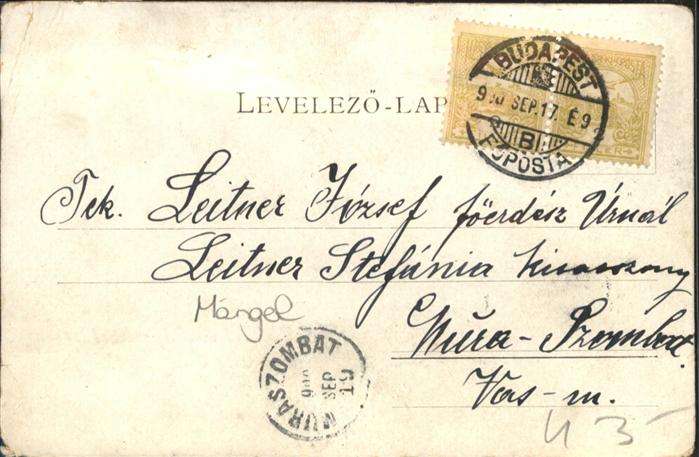 LEVELEZŐ-LAP
BUDAPEST
900 SEP. 17. É9
B
FŐPOSTA
Tek. Leitner József főerdész Úrnál
Leitner Stefánia kisasszony
Mura-Szombat
Vas-m.
MURASZOMBAT
900
SEP